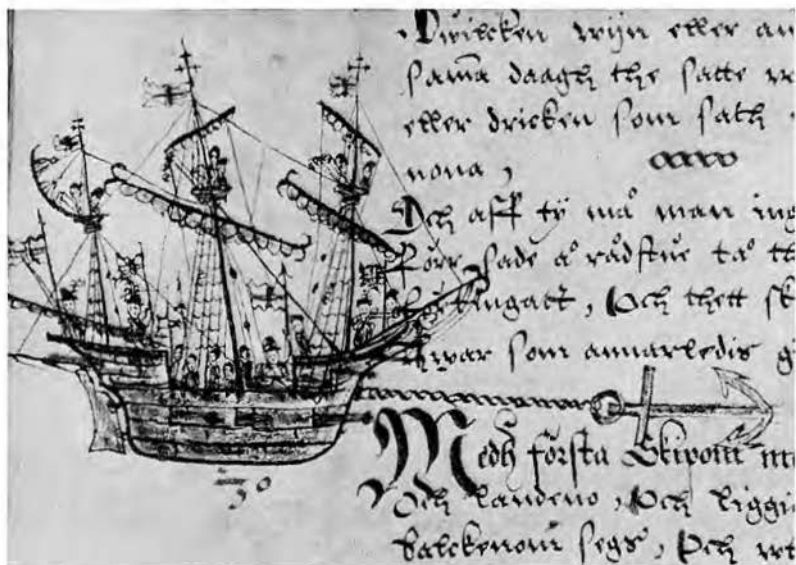 Hwilcken wijn eller an
sama daagh the satte
eller dricken som sath
nona,
Och aff ty må man ing
Förr sade å rådstue ta
, Och thett sk
Hwar som annarledis g
Medh första Skipom m
Och landeno, Och liggi
balckenom segs, Och